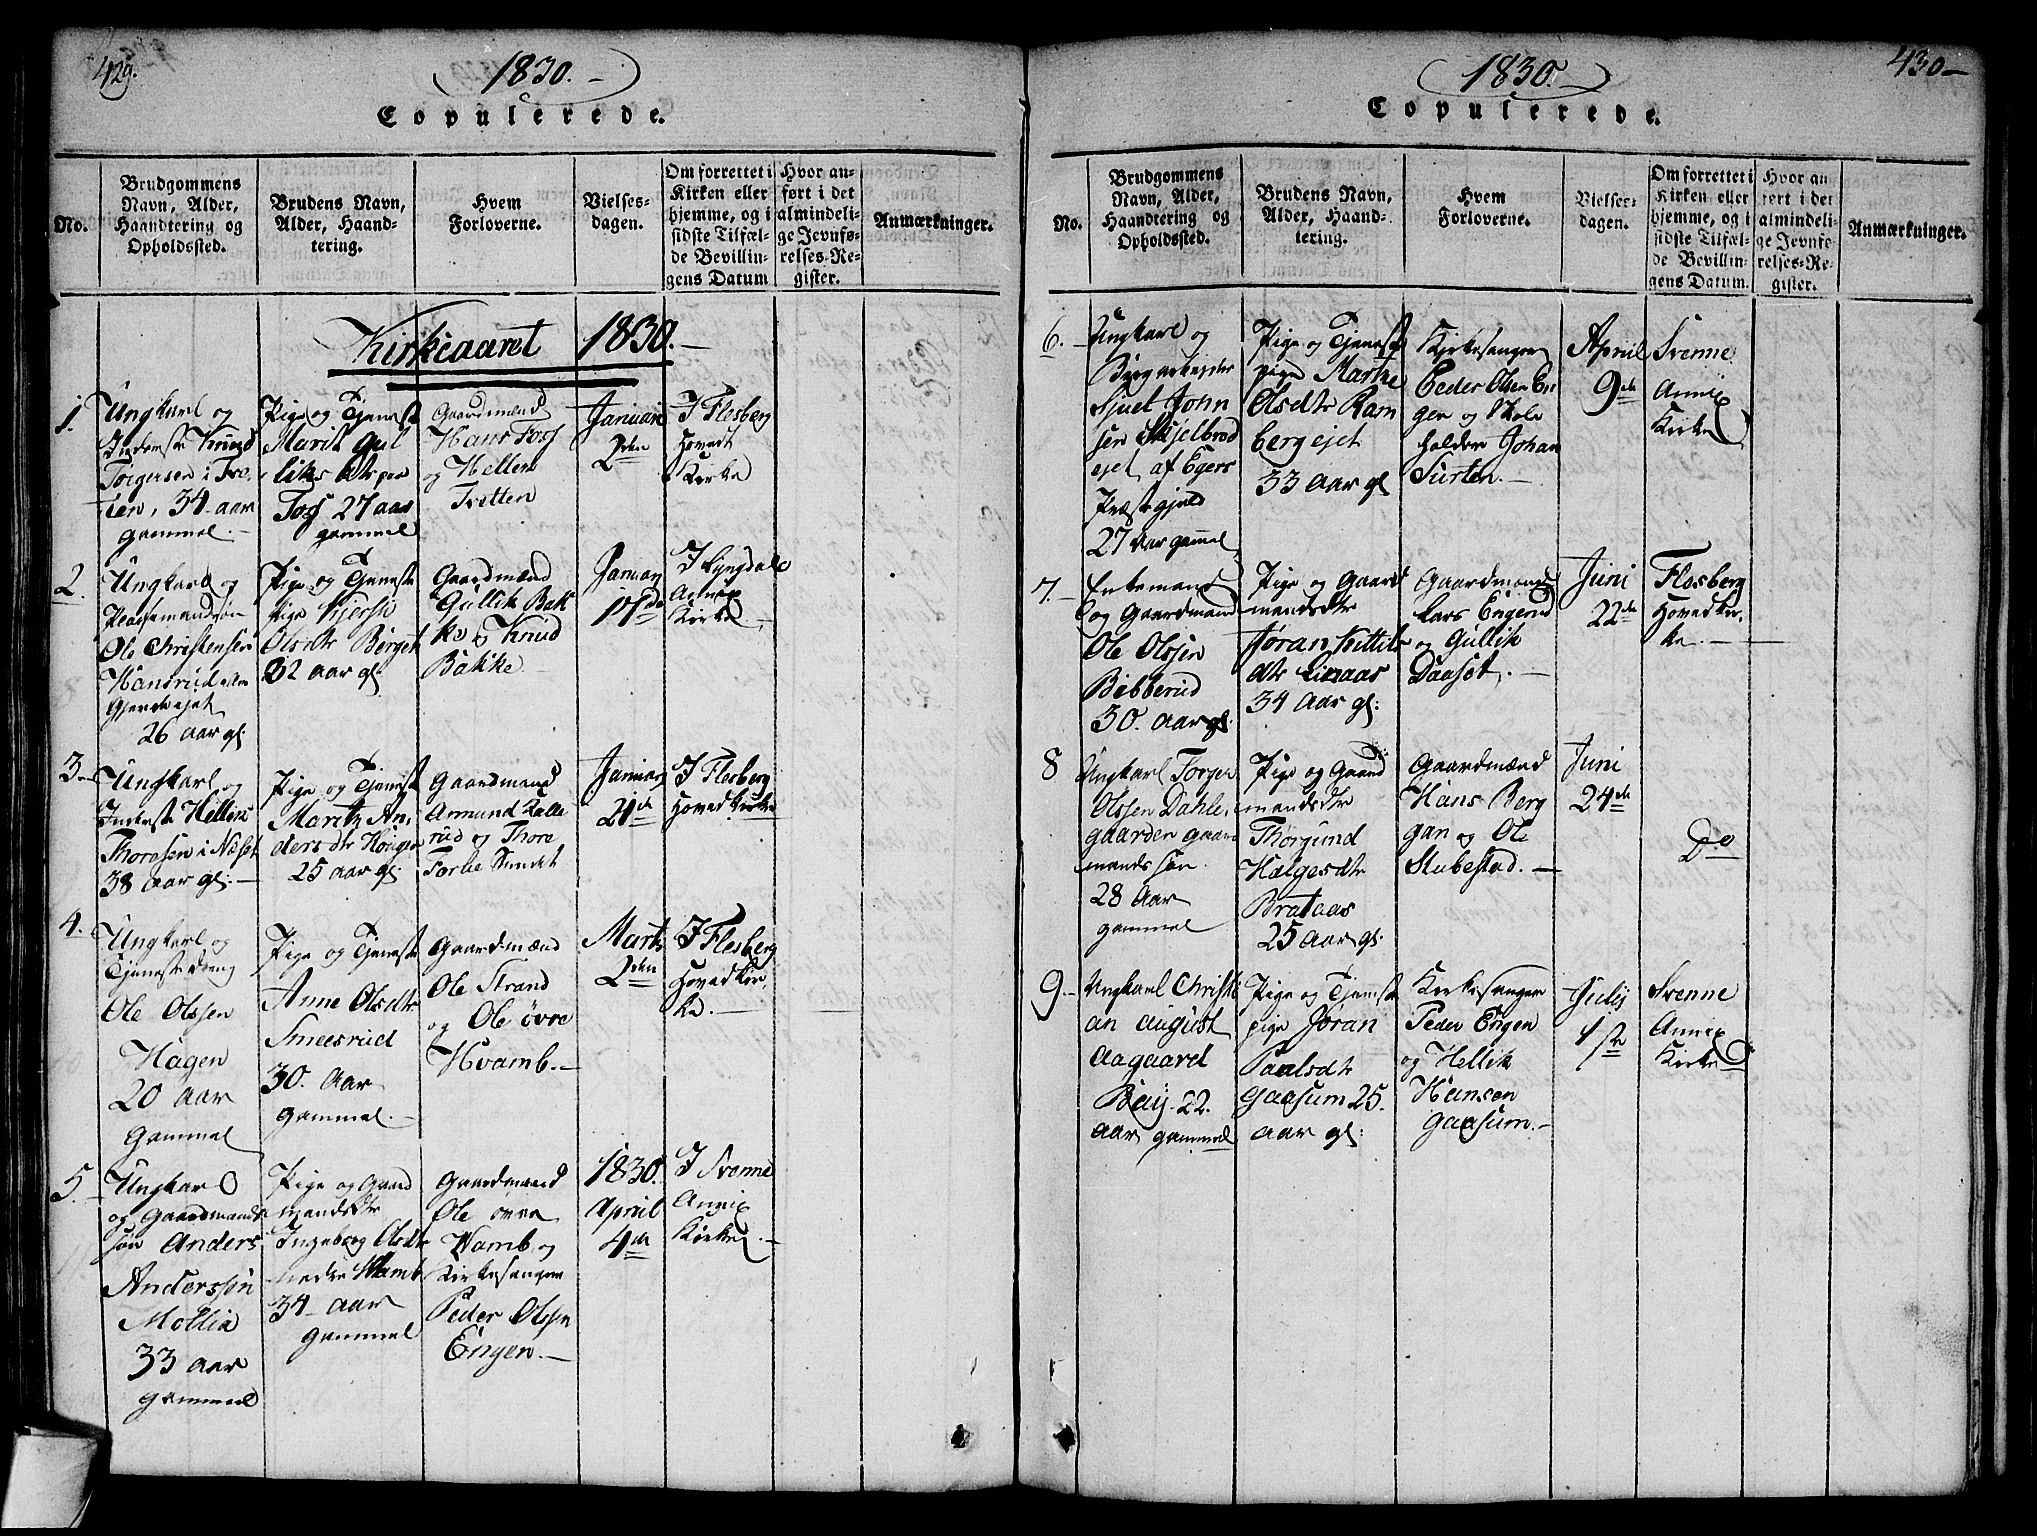 429.
1830.
Copulerede.
No.
Brudgommens
Navn, Alder,
Haandtering og
Opholdssted.
Brudens Navn,
Alder, Haand-
tering.
Hvem
Forloverne.
Vielses-
dagen.
Om forrettet i
Kirken eller
hjemme, og i
sidste Tilfæl-
de Bevillin-
gens Datum
Hvor an-
ført i det
almindeli-
ge Jevnfø-
relses-Re-
gister.
Anmærkninger.
Kirkeaaret 1830.
1.
Ungkarl og
Inderste Knud
Torgersen i Tve-
ten, 34 aar
gammel.
Pige og Tjeneste
Marit Gul
liksdtr
Fos 27 aar
gammel
Gaardmænd
Hans Fos
og Hellen
Tvetten
Januar
2den
I Flesberg
Hovedt
Kirke
2.
Ungkarl og
Ole Christensen
Hansrud
26 aar gl:
Pige og Tjeneste
pige Kjersti
Olsdtr Berget
32 aar gl:
Gaardmænd
Gullik Bak
ke og Knud
Bakke
Januar
17de
I Lyngdals
Annex
Kirke
3
Ungkarl og
Inderste Hellen
Thoresen i Næset
38 aar gl:
Pige og Tjeneste
Marit An
dersdtr
25 aar gl:
Gaardmænd
Thore
Januar
21de
I Flesberg
Hovedkirke
4.
Ungkarl og
Tjenestedreng
Ole Olssen
Hagen
20 aar
gammel
Pige og Tjeneste
Anne Olsdtr
Smeesrud
30. aar
gammel.
Gaardmænd
Ole Strand
og Ole øvre
Hvamb.
Marts
2den
I Flesberg
Hovedkir,
ke.
5.
Ungkarl
og Gaardmands
søn Anders
Anderssøn
Mollia
33 aar
gammel
Pige og Gaard
mandsdtr
Ingeborg Olsdtr
nedre Hvamb
34 aar
gammel
Gaardmænd
Ole øvre
Hvamb og
Kirkesanger
Peder Olssen
Engen.
1830.
April
4de
I Svenne
Annex
Kirke
430
1830.
Copulerede.
No.
Brudgommens
Navn, Alder,
Haandtering og
Opholdssted.
Brudens Navn,
Alder, Haand-
tering.
Hvem
Forloverne.
Vielses-
dagen.
Om forrettet i
Kirken eller
hjemme, og i
sidste Tilfæl-
de Bevillin-
gens Datum.
Hvor an
ført i det
almindeli-
ge Jevnfø-
relses-Re-
gister.
Anmærkninger.
6.
Ungkarl og
Bergarbeider
Siuet John
sen Skjelbred
ejet af Egers
Præstegjeld
27 aar gammel
Pige og Tjeneste
pige Marthe
Olsdtr Ram
bergejet
33 aar gl
Kirkesanger
Peder Olsen En
gen og Skole
holder Johan
Surten.
April
9de
Svenne
Annex
Kirke
7.
Enkemand
og Gaardmand
Ole Olssen
Bibberud
30. aar gl.
Pige og Gaard
mandsdtr
Jøran Kittils
dtr Linaas
34 aar gl:
Gaardmænd
Lars Engerud
og Gullik
Daaset.
Juni
22de
Flesberg
Hovedkir,
ke
8
Ungkarl Torger
Olssen Dahle,
gaarden gaard
mands søn.
28 aar
gammel
Pige og Gaard
mandsdtr
Thorgund
Hælgesdtr
Brataas
25 aar gl.
Gaardmænd
Hans Berg
gan og Ole
Stubestad.
Juni
24de
Do
9.
Ungkarl Christi
an August
Aagaard
Baij 22.
aar gammel
Pige og Tjeneste
pige Jøran
Paalsdtr
Gaasum 25.
aar gl:
Kirkesanger
Peder Engen
og Hellik
Hansen
Gaasum.
Julij
1ste
Svenne
Annex
Kirke